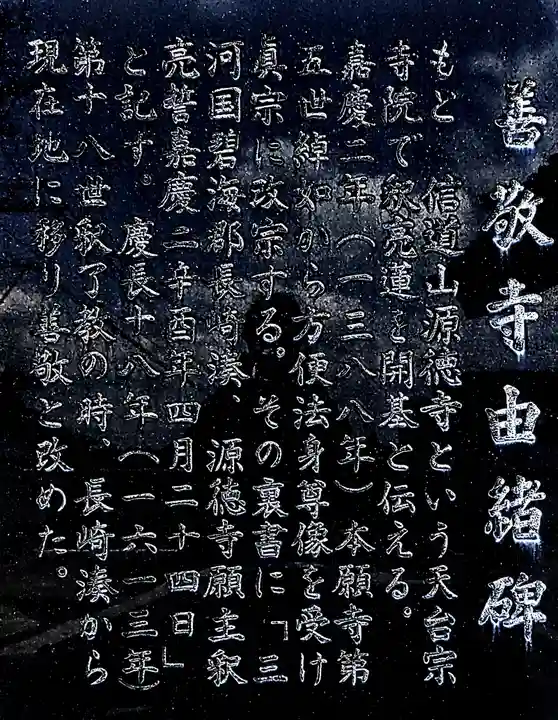 善敬寺由緒碑
もと 信道山源徳寺という天台宗
寺院で釈亮蓮を開基と伝える。
嘉慶二年(一三八八年)本願寺第
五世綽如から方便法身尊像を受け
眞宗に改宗する。その裏書に「三
河国碧海郡長崎湊、源徳寺願主釈
亮誓嘉慶二辛酉年四月二十四日」
と記す。慶長十八年(一六一三年)
第十八世釈了教の時、長崎湊から
現在地に移り善敬と改めた。